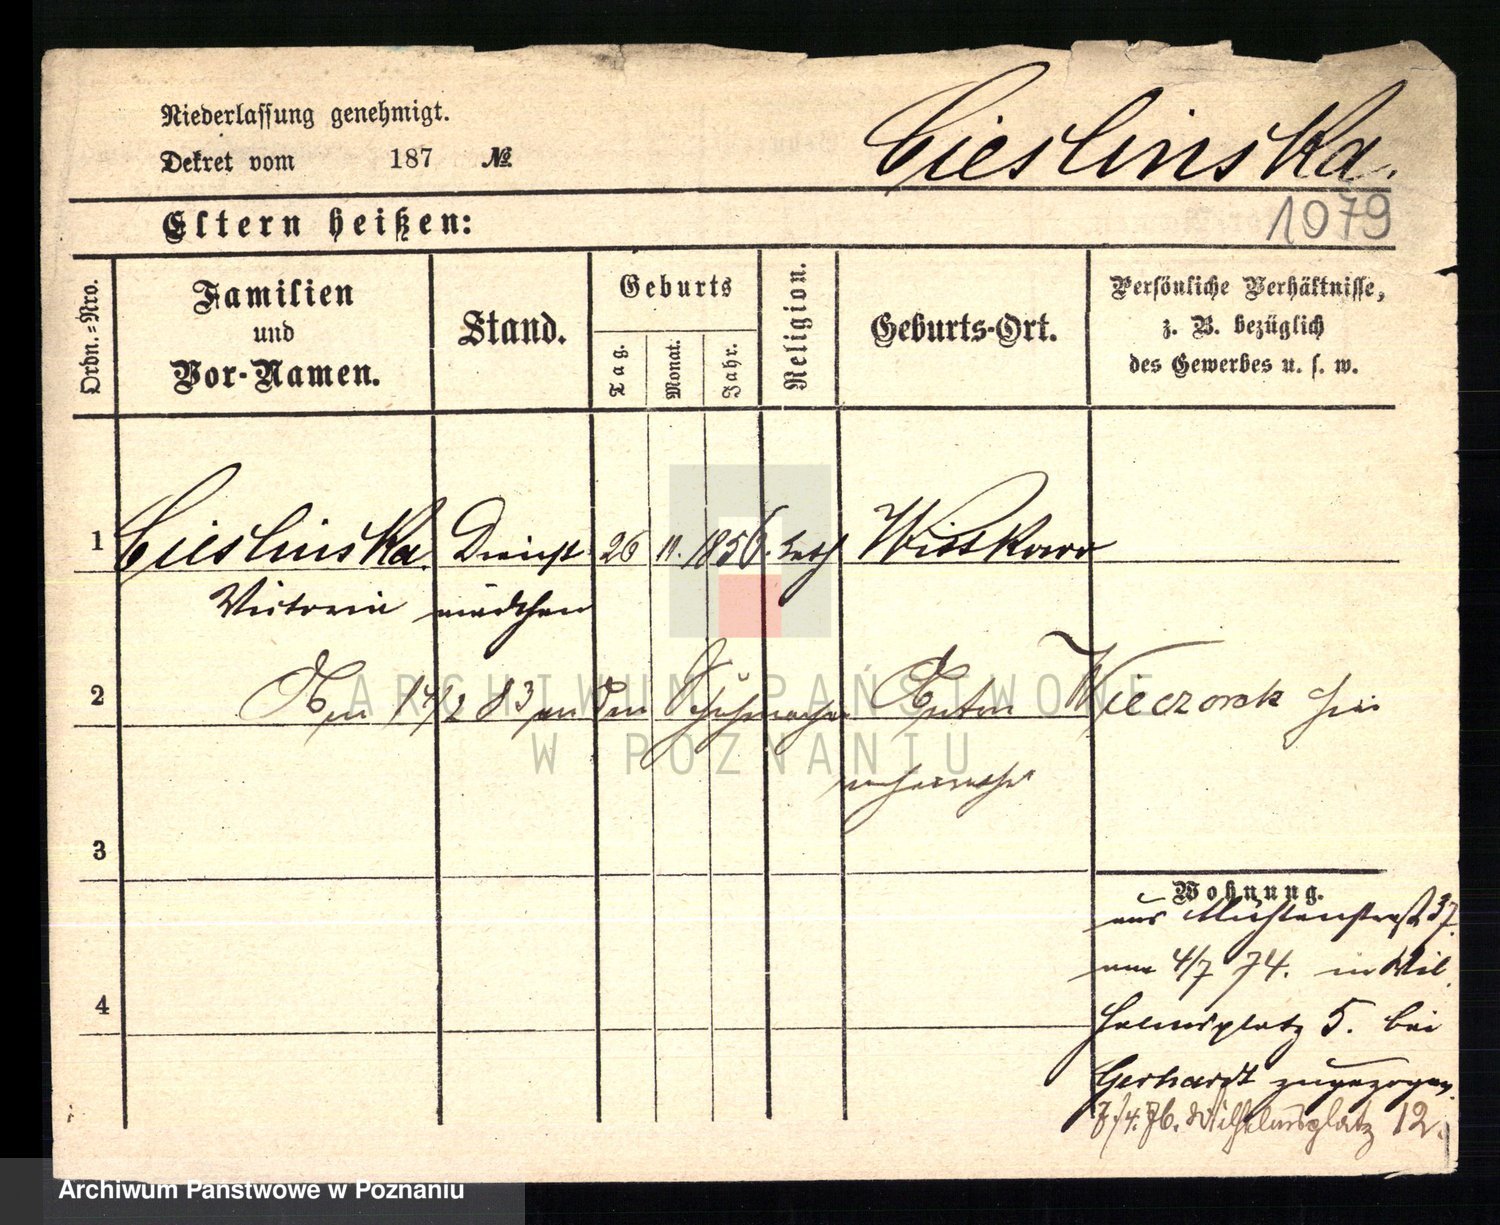 Niederlassung genehmigt.
Dekret vom 187 №
Cieslinska.
1079
Eltern heißen:
Ordn.=Nro.
Familien
und
Vor-Namen.
Stand.
Geburts
Tag.
Monat.
Jahr.
Religion.
Geburts-Ort.
Persönliche Verhältnisse,
z. B. bezüglich
des Gewerbes u. s. w.
1 Cieslinska. Dienst 26 11. 1856. kath Witkowo
Victoria mädchen
2 Am 14/2 83 an den Schuhmacher Anton Wieczorek hier
verheirathet
3
Wohnung.
aus 37.
am 4/7 74. in Wil
4 helmsplatz 5. bei
Gerhardt zugezogen.
7/4. 76. Wilhelmsplatz 12.
ARCHIWUM PAŃSTWOWE
W POZNANIU
Archiwum Państwowe w Poznaniu